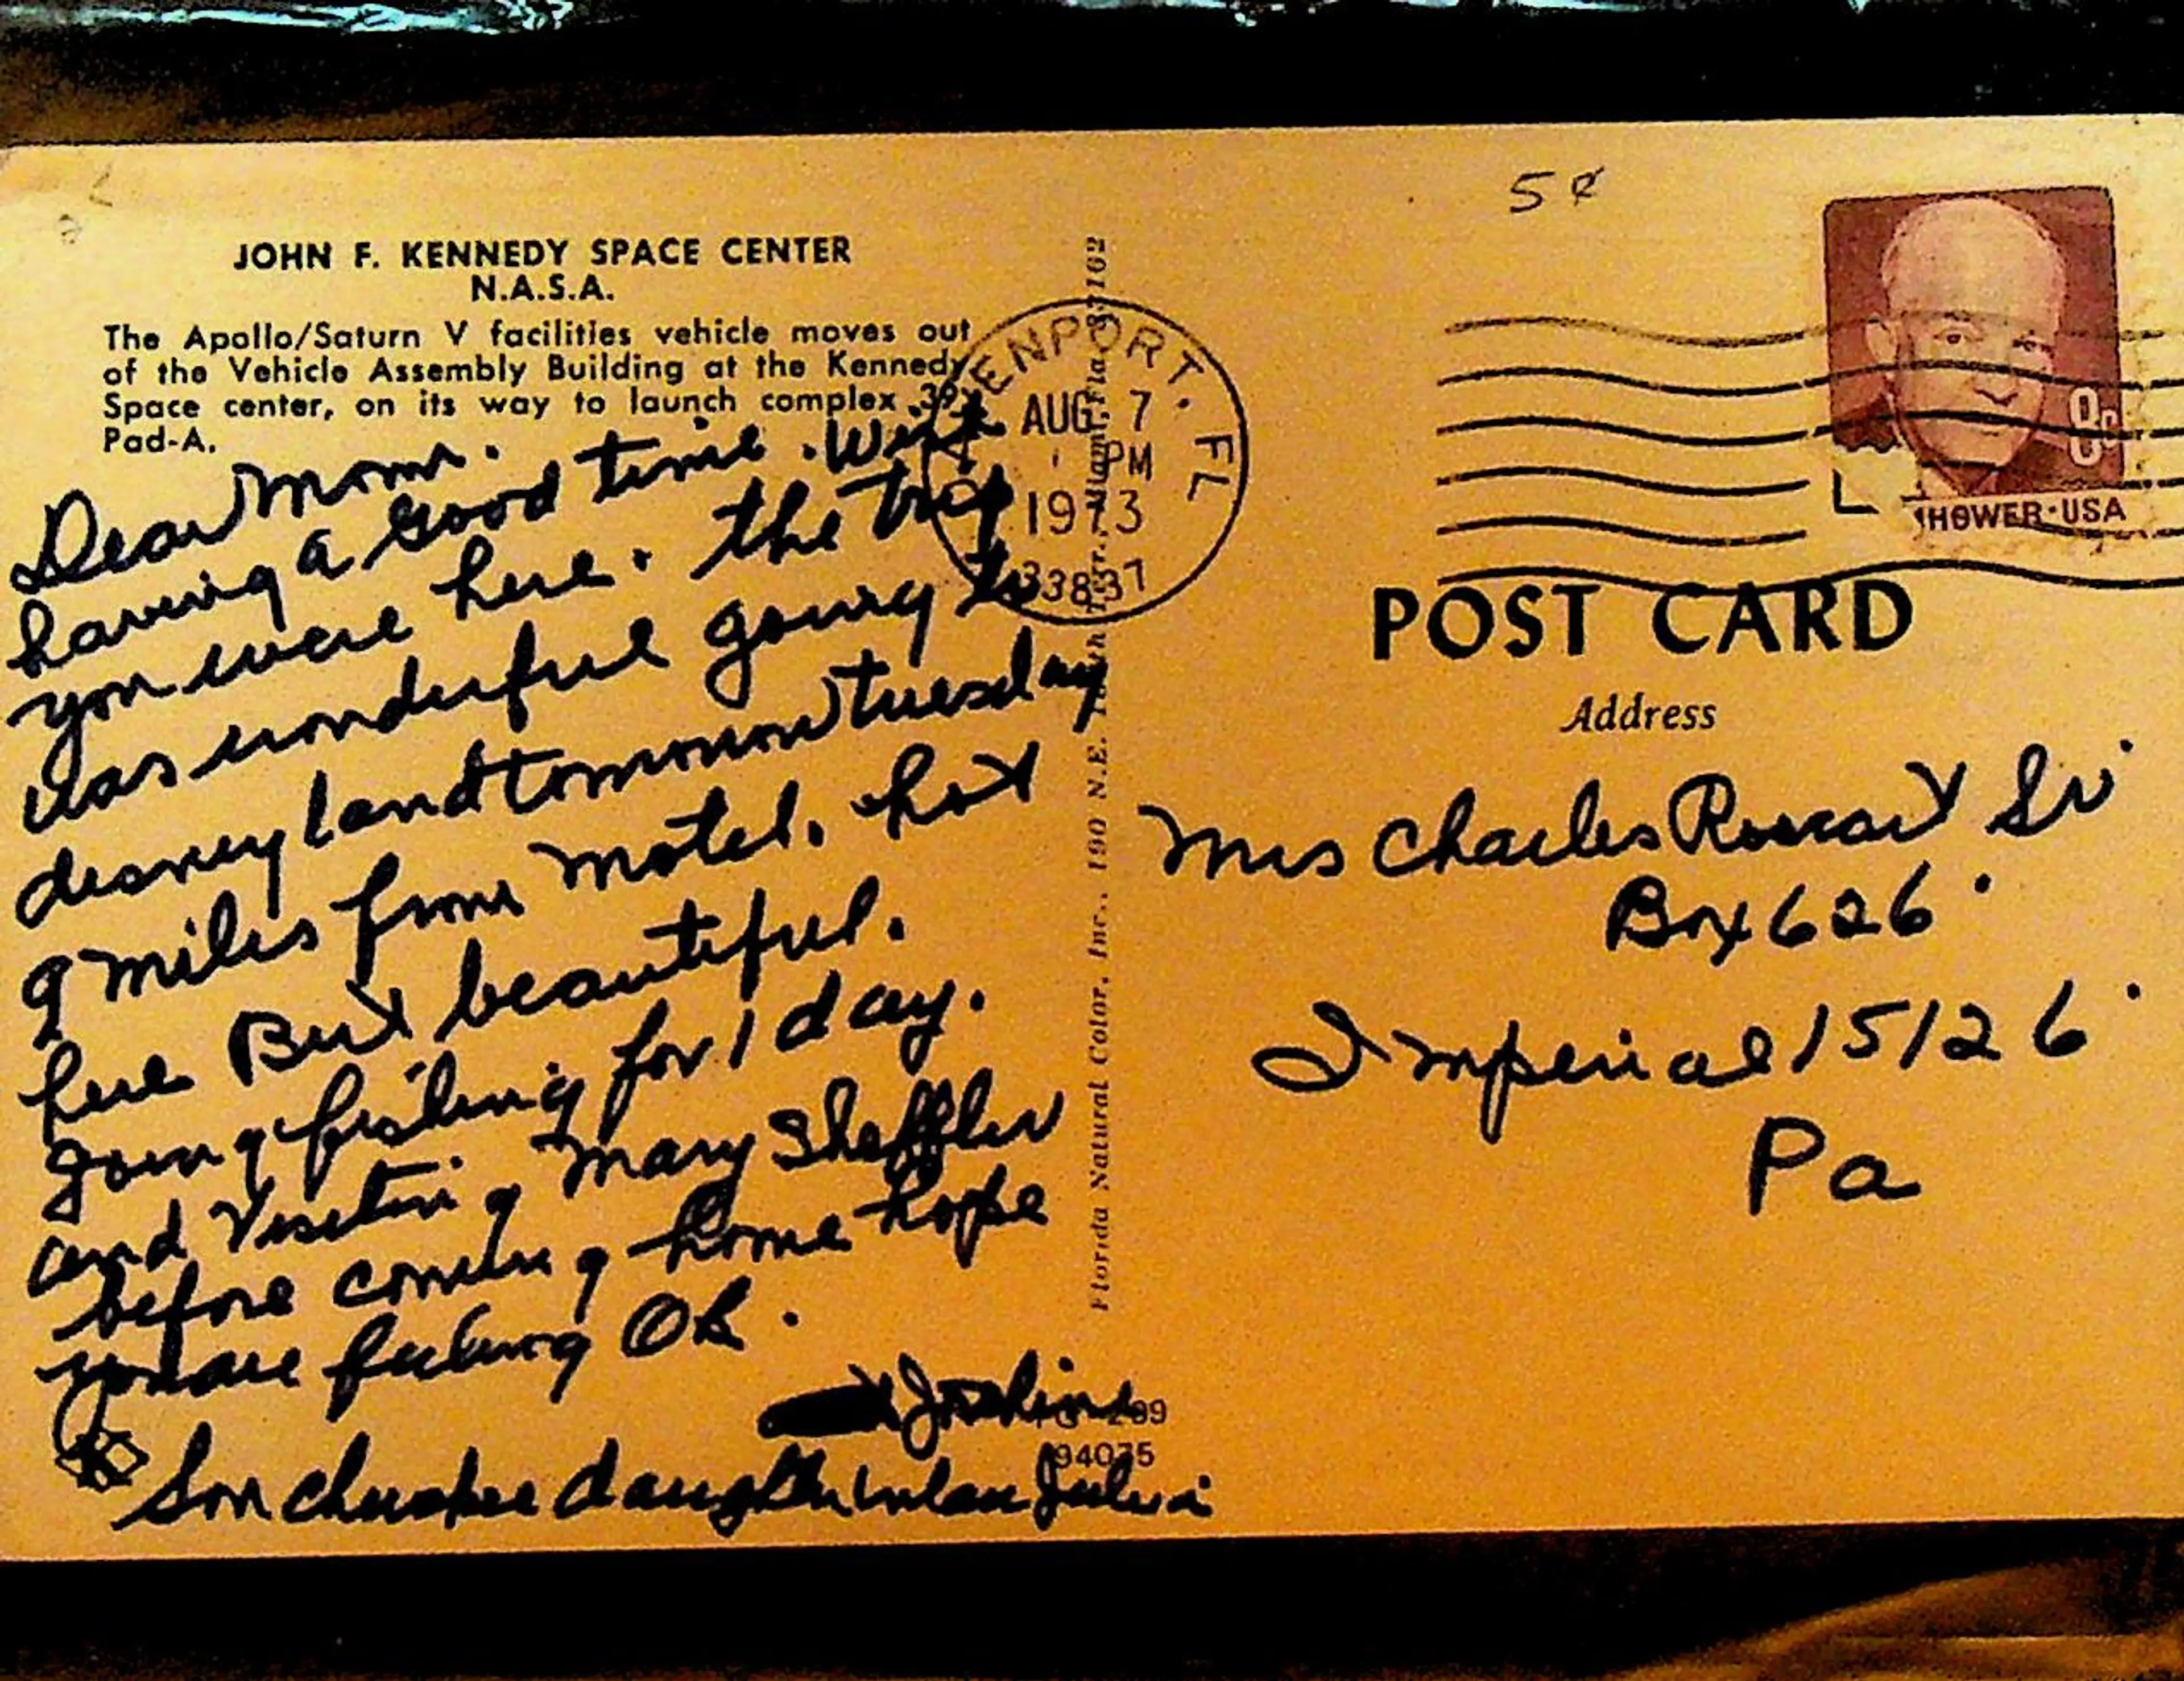 5¢
JOHN F. KENNEDY SPACE CENTER
N.A.S.A.
The Apollo/Saturn V facilities vehicle moves out
of the Vehicle Assembly Building at the Kennedy
Space center, on its way to launch complex 39,
Pad-A.
Dear Mom.
having a Good time. Wish
you were here. the trip
was wonderful going to
disney land tomorrow tuesday
9 miles from Motel. hot
here But beautiful.
going fishing for 1 day.
and Visiting Mary Sheffler
before coming home hope
you are feeling OK.
Son daughter inlaw
ENPORT, FL
AUG 7
PM
1973
33837
Florida Natural Color, Inc., 190 N.E.
94035
8c
HOWER·USA
POST CARD
Address
Mrs Charles Sr
Box 626
Imperial 15126
Pa